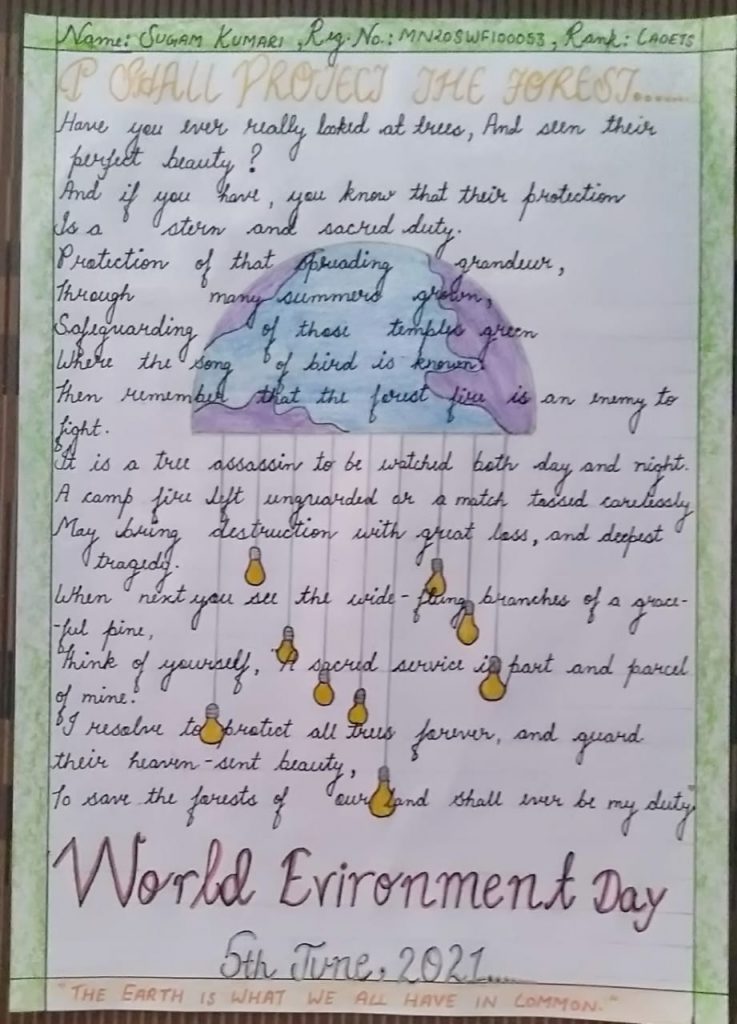 Name: SUGAM KUMARI, Reg. No.: MN20SWF100053, Rank: CADETS
I SHALL PROTECT THE FOREST......
Have you ever really looked at trees, And seen their
perfect beauty?
And if you have, you know that their protection
Is a stern and sacred duty.
Protection of that spreading grandeur,
Through many summers grown,
Safeguarding of those temples green
Where the song of bird is known.
Then remember that the forest fire is an enemy to
fight.
It is a tree assassin to be watched both day and night.
A camp fire left unguarded or a match tossed carelessly
May bring destruction with great loss, and deepest
tragedy.
When next you see the wide-flung branches of a grace-
-ful pine,
Think of yourself, "A sacred service is part and parcel
of mine."
"I resolve to protect all trees forever, and guard
their heaven-sent beauty,
To save the forests of our land shall ever be my duty."
World Evironment Day
5th June, 2021....
"THE EARTH IS WHAT WE ALL HAVE IN COMMON."